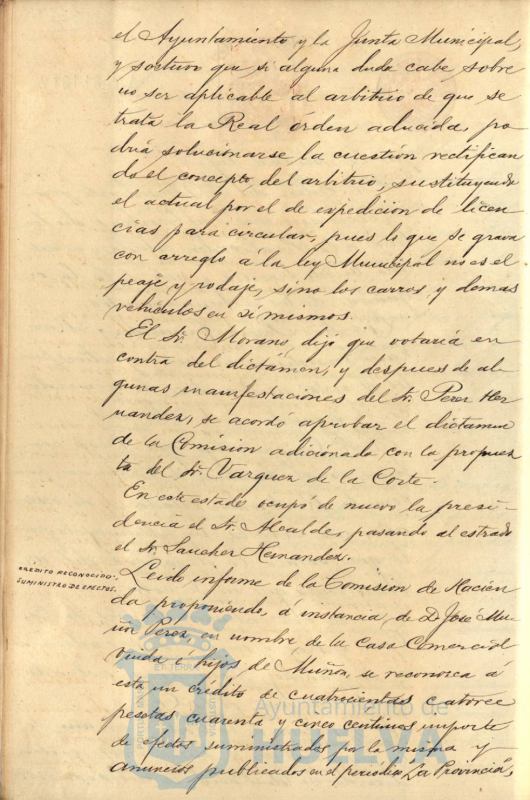 el Ayuntamiento y la Junta Municipal,
y sostuvo que si alguna duda cabe sobre
no ser aplicable al arbitrio de que se
trata la Real órden aducida, po
dria solucionarse la cuestión rectifican
do el concepto del arbitrio, sustituyendo
el actual por el de expedicion de licen
cias para circular, pues lo que se grava
con arreglo a la ley Municipal no es el
peaje y rodaje, sino los carros y demas
vehículos en si mismos.
El Sr. Morano dijo que votaría en
contra del dictámen, y despues de al
gunas manifestaciones del Sr. Perez Her
nandez, se acordó aprobar el dictamen
de la Comision adicionada con la propues
ta del Sr. Vazquez de la Corte.
En este estado ocupó de nuevo la presi
dencia el Sr. Alcalde, pasando al estrado
el Sr. Sanchez Hernandez.
CRÉDITO RECONOCIDO.
SUMINISTRO DE EFECTOS.
Leido informe de la Comision de Hacien
da proponiendo, á instancia, de D. José Mu
ñoz Perez, en nombre de la Casa Comercial
Viuda é hijos de Muñoz, se reconozca á
esta un crédito de cuatrocientas catorce
pesetas cuarenta y cinco centimos importe
de efectos suministrados por la misma y
anuncios publicados en el periódico La Provincia,
Ayuntamiento de
HUELVA